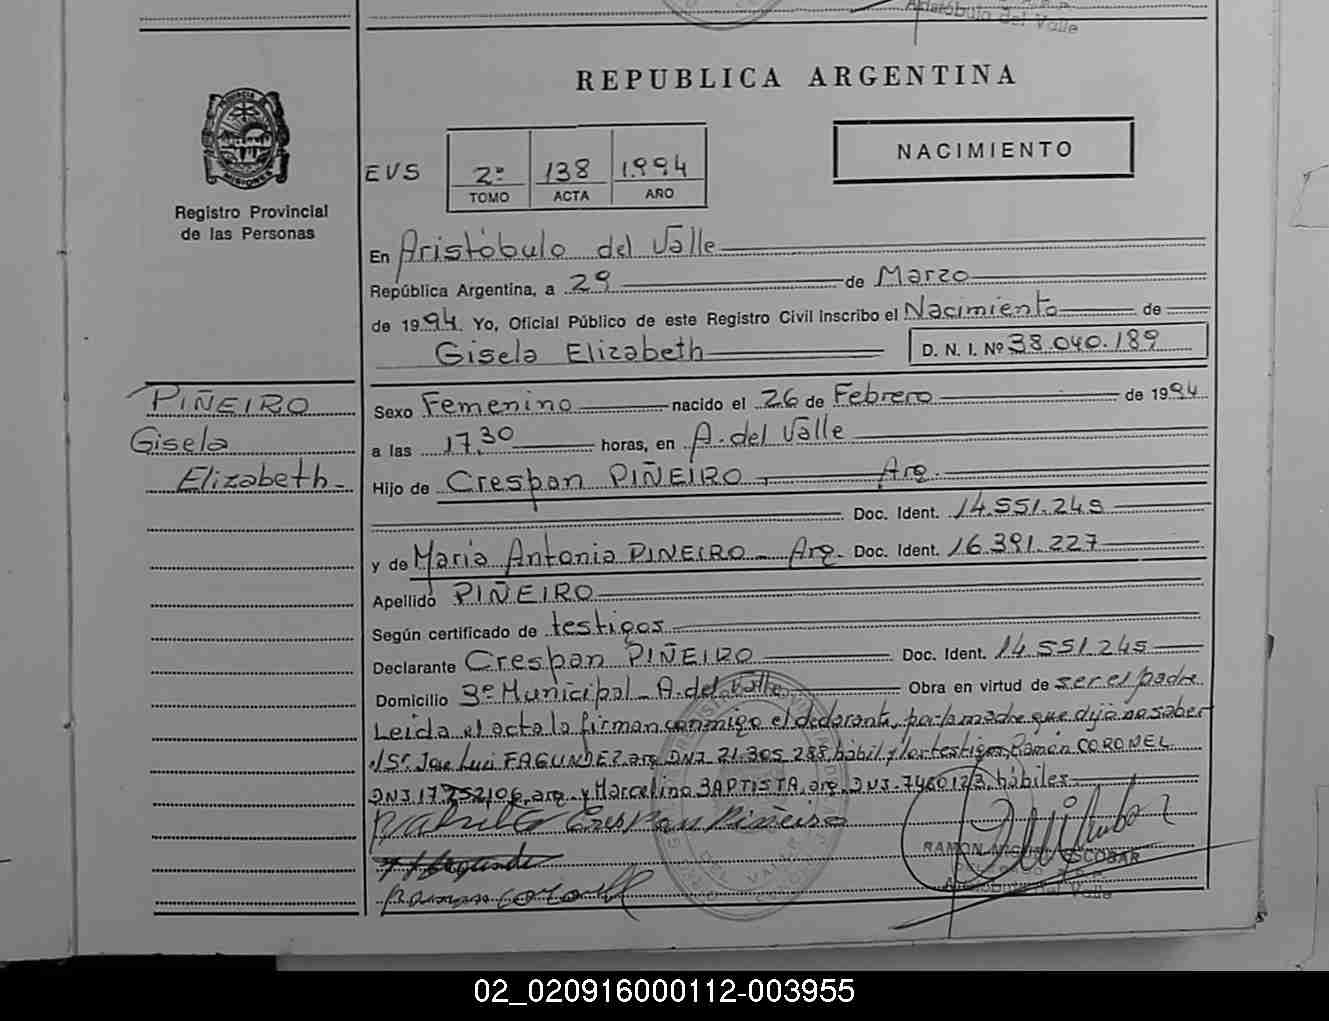 Aristóbulo del Valle
REPUBLICA ARGENTINA
PROVINCIA DE
MISIONES
Registro Provincial
de las Personas
EVS
2º 138 1.994
TOMO ACTA AÑO
NACIMIENTO
En Aristóbulo del Valle
República Argentina, a 29 de Marzo
de 1994. Yo, Oficial Público de este Registro Civil inscribo el Nacimiento de
Gisela Elizabeth D. N. I. Nº 38.040.189
PIÑEIRO
Gisela
Elizabeth-
Sexo Femenino nacido el 26 de Febrero de 1994
a las 17,30 horas, en A. del Valle
Hijo de Crespan PIÑEIRO - Arg.
Doc. Ident. 14.551.245
y de Maria Antonia PIÑEIRO - Arg. Doc. Ident. 16.391.227
Apellido PIÑEIRO
Según certificado de testigos
Declarante Crespan PIÑEIRO Doc. Ident. 14.551.245
Domicilio Bº Municipal - A. del Valle Obra en virtud de ser el padre
Leida el acta la firman conmigo el declarante, por la madre que dijo no saber
el Sr. Jose Luis FAGUNDEZ, arg. DNI 21.305.288, hábil y los testigos, Ramón CORONEL
DNI.17.252.106, arg. y Marcelino BAPTISTA, arg. DNI. 7.460.123, hábiles.
Crespan Piñeiro
RAMON MIGUEL ESCOBAR
Aristóbulo del Valle
Ramon coronel
02_020916000112-003955